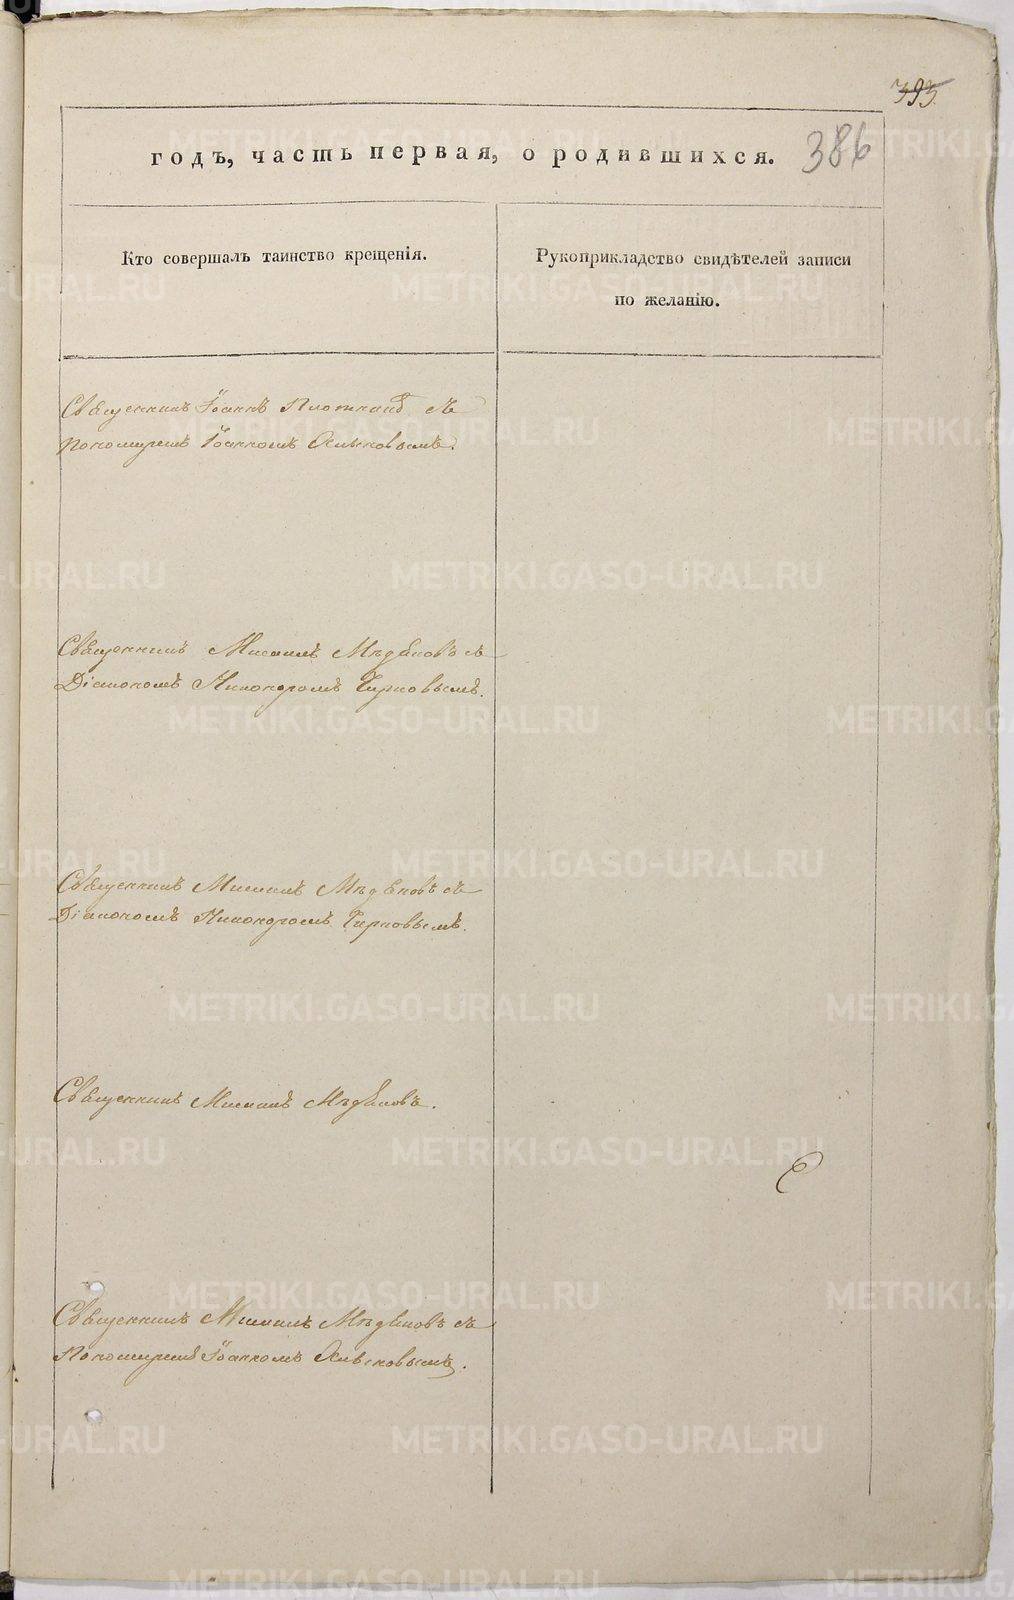 393.
386
годъ, часть первая, о родившихся.
Кто совершалъ таинство крещенія.
Рукоприкладство свидѣтелей записи
по желанію.
Священникъ Іоаннъ съ
Пономаремъ Іоанномъ
Священникъ Михаилъ съ
Діакономъ Никоноромъ Чирковымъ.
Священникъ Михаилъ съ
Діакономъ Никоноромъ Чирковымъ.
Священникъ Михаилъ
Священникъ Михаилъ съ
Пономаремъ Іоанномъ
METRIKI.GASO-URAL.RU